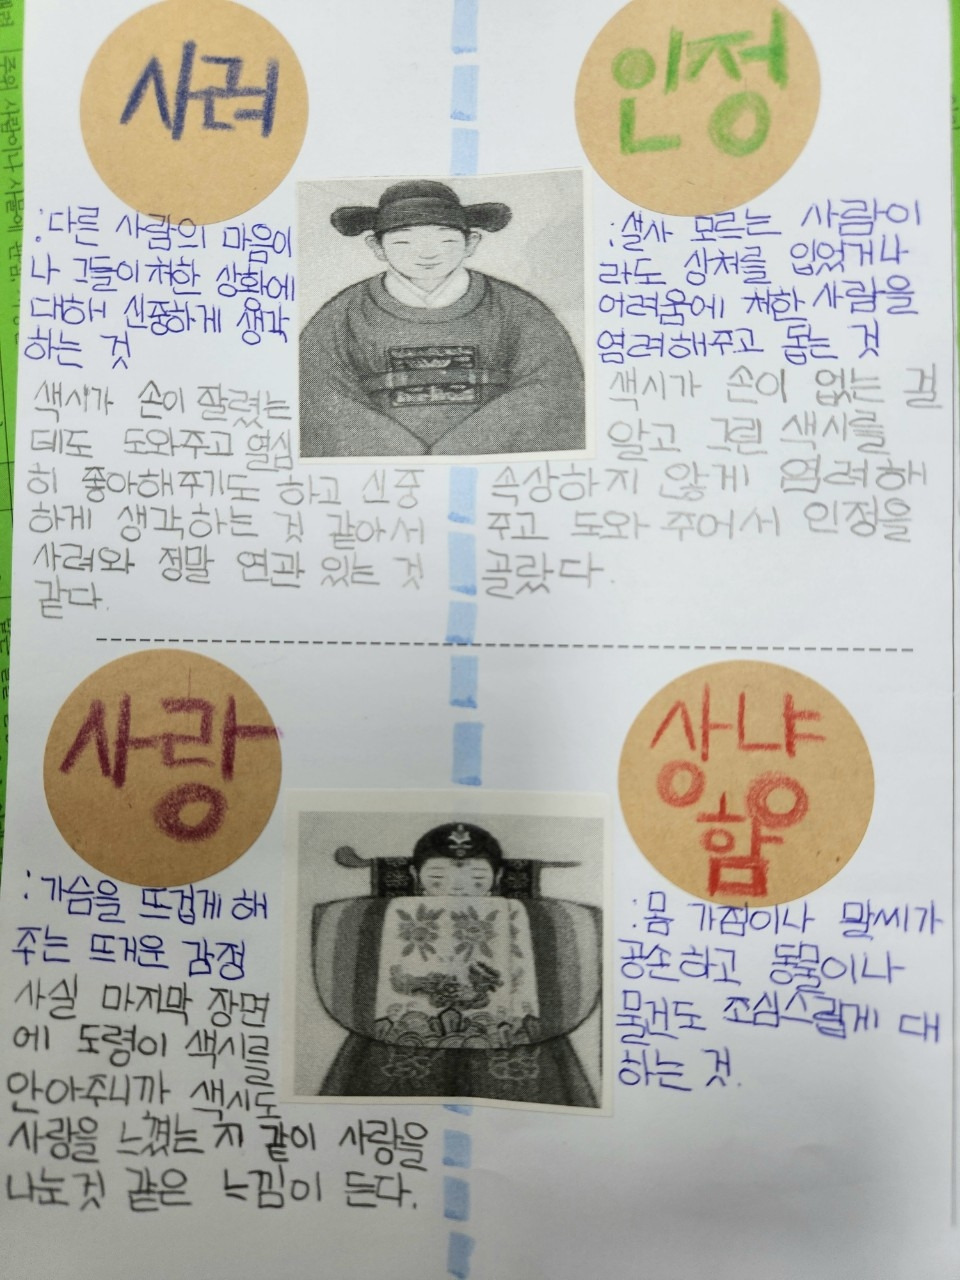 사려
:다른 사람의 마음이
나 그들이 처한 상황에
대해 신중하게 생각
하는 것
색시가 손이 잘렸는
데도 도와주고 열심
히 좋아해주기도 하고 신중
하게 생각하는 것 같아서
사려와 정말 연관 있는 것
같다.
인정
:설사 모르는 사람이
라도 상처를 입었거나
어려움에 처한 사람을
염려해주고 돕는 것
색시가 손이 없는 걸
알고 그런 색시를
속상하지 않게 염려해
주고 도와 주어서 인정을
골랐다.
사랑
:가슴을 뜨겁게 해
주는 뜨거운 감정
사실 마지막 장면
에 도령이 색시를
안아주니까 색시도
사랑을 느꼈는지 같이 사랑을
나눈것 같은 느낌이 든다.
상냥
함
:몸 가짐이나 말씨가
공손하고 동물이나
물건도 조심스럽게 대
하는 것.
주위 사람이나 사물에